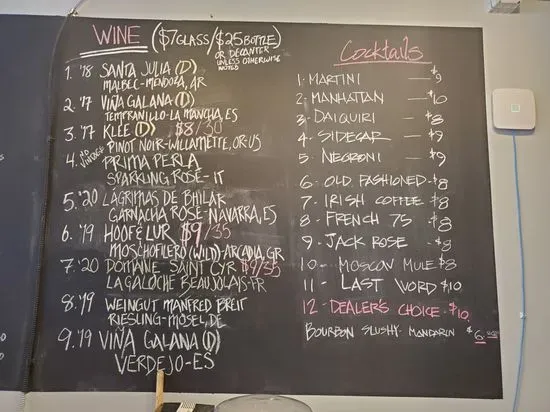 WINE ($7 GLASS/$25 BOTTLE)
OR DECANTER
UNLESS OTHERWISE
NOTED
1. '18 SANTA JULIA (D)
MALBEC-MENDOZA, AR
2. '17 VIÑA GALANA (D)
TEMPRANILLO-LA MANCHA, ES
3. '17 KLEE (D) $8/30
PINOT NOIR-WILLAMETTE, OR-US
4. NO VINTAGE PRIMA PERLA
SPARKLING ROSE-IT
5. '20 LÁGRIMAS DE BHILAR
GARNACHA ROSE-NAVARRA, ES
6. '19 HOOF & LUR $9/35
MOSCHOFILERO (WILD)-ARCADIA, GR
7. '20 DOMAINE SAINT CYR $9/35
LA GALOCHE BEAUJOLAIS-FR
8. '19 WEINGUT MANFRED BREIT
RIESLING-MOSEL, DE
9. '19 VIÑA GALANA (D)
VERDEJO-ES
Cocktails
1. MARTINI — $9
2. MANHATTAN — $10
3. DAIQUIRI — $8
4. SIDECAR — $9
5. NEGRONI — $9
6. OLD FASHIONED - $8
7. IRISH COFFEE - $8
8. FRENCH 75 - $8
9. JACK ROSE - $8
10 - MOSCOW MULE $8
11 - LAST WORD $10
12 - DEALER'S CHOICE - $10
BOURBON SLUSHY - MANDARIN $6